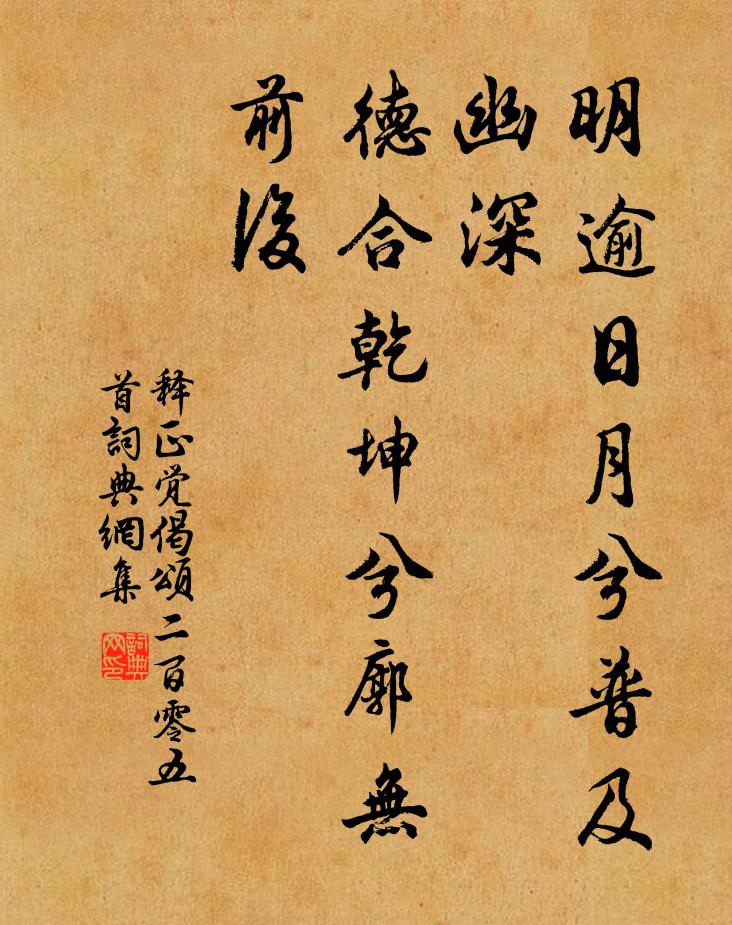 明逾日月兮普及
幽深
德合乾坤兮廓無
前後
释正觉偈頌二百零五
首詞典網集
詞典網印